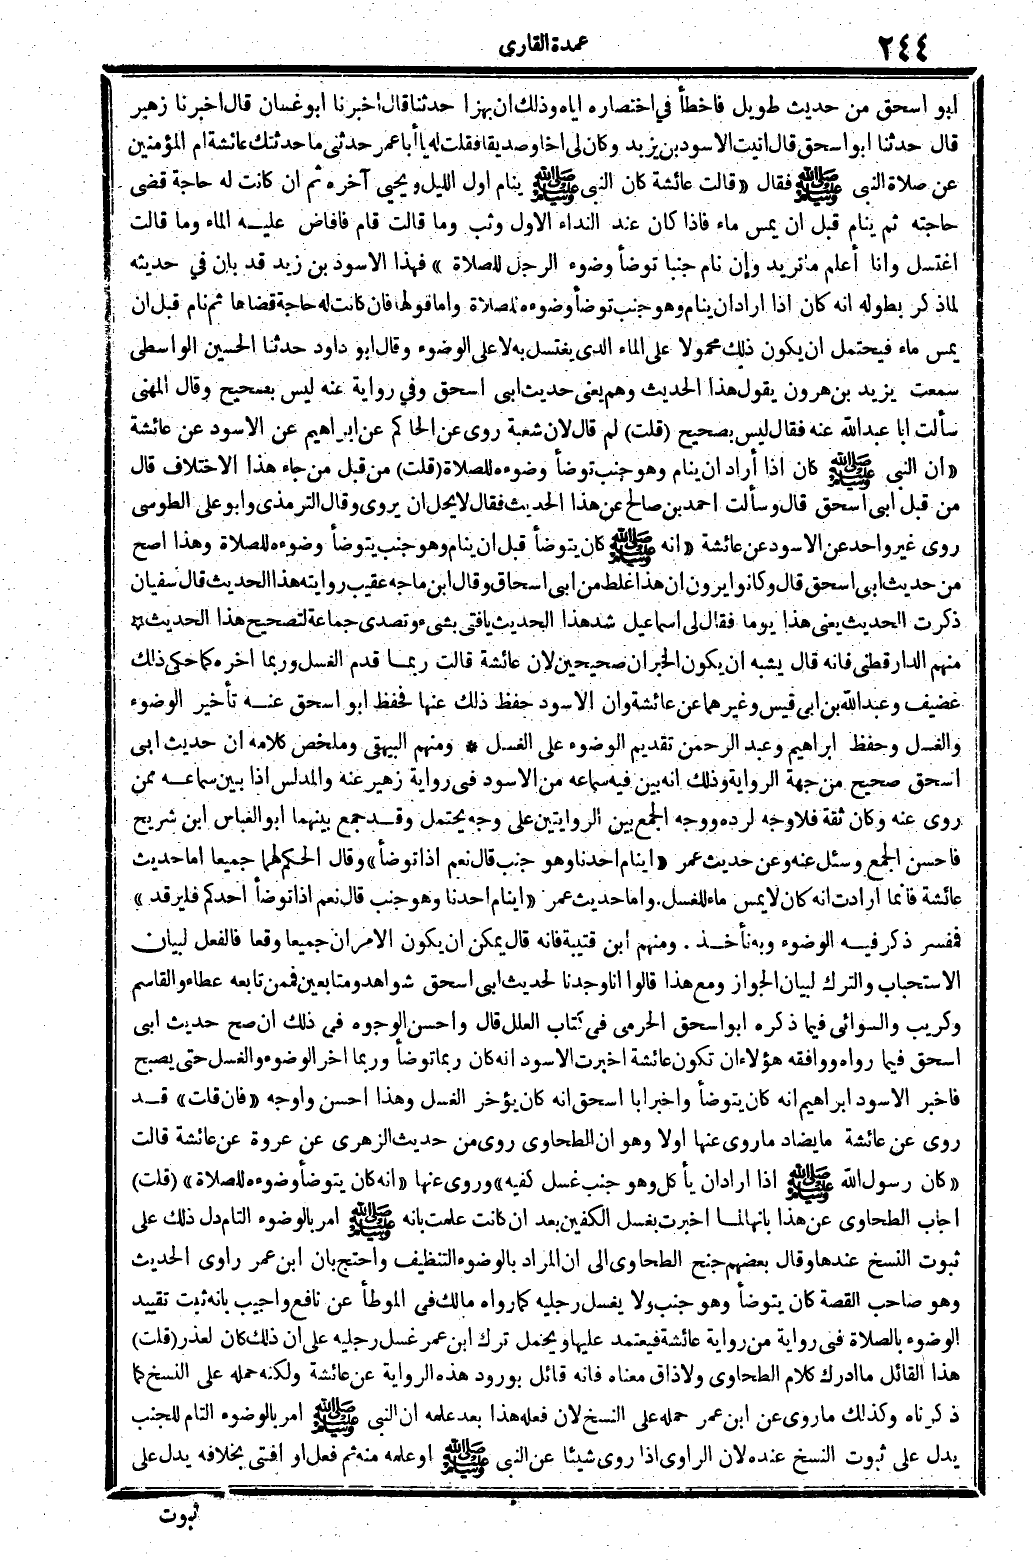 ٢٤٤
عمدة القارى
ابو اسحق من حديث طويل فاخطأ في اختصاره اياه وذلك ان بهزا حدثنا قال اخبرنا ابو غسان قال اخبرنا زهير
قال حدثنا ابو اسحق قال اتيت الاسود بن يزيد وكان لى اخا وصديقا فقلت له يا أبا عمر حدثنى ما حدثتك عائشة ام المؤمنين
عن صلاة النبى ﷺ فقال «قالت عائشة كان النبى ﷺ ينام اول الليل ويحيى آخره ثم ان كانت له حاجة قضى
حاجته ثم ينام قبل ان يمس ماء فاذا كان عند النداء الاول وثب وما قالت قام فافاض عليه الماء وما قالت
اغتسل وانا أعلم ما تريد وإن نام جنبا توضأ وضوء الرجل للصلاة» فهذا الاسود بن زيد قد بان في حديثه
لما ذكر بطوله انه كان اذا اراد ان ينام وهو جنب توضأ وضوءه للصلاة واما قولها فان كانت له حاجة قضاها ثم نام قبل ان
يمس ماء فيحتمل ان يكون ذلك محمولا على الماء الذى يغتسل به لا على الوضوء وقال ابو داود حدثنا الحسين الواسطى
سمعت يزيد بن هرون يقول هذا الحديث وهم يعنى حديث ابى اسحق وفي رواية عنه ليس بصحيح وقال المهنى
سألت ابا عبدالله عنه فقال ليس بصحيح (قلت) لم قال لان شعبة روى عن الحاكم عن ابراهيم عن الاسود عن عائشة
«ان النبى ﷺ كان اذا أراد ان ينام وهو جنب توضأ وضوءه للصلاة (قلت) من قبل من جاء هذا الاختلاف قال
من قبل ابى اسحق قال وسألت احمد بن صالح عن هذا الحديث فقال لا يحل ان يروى وقال الترمذى وأبو على الطوسى
روى غير واحد عن الاسود عن عائشة «انه ﷺ كان يتوضأ قبل ان ينام وهو جنب يتوضأ وضوءه للصلاة وهذا اصح
من حديث ابى اسحق قال وكانوا يرون ان هذا غلط من ابى اسحاق وقال ابن ماجه عقيب روايته هذا الحديث قال سفيان
ذكرت الحديث يعنى هذا يوما فقال لى اسماعيل شد هذا الحديث يا فتى بشىء وتصدى جماعة لتصحيح هذا الحديث *
منهم الدارقطنى فانه قال يشبه ان يكون الخبران صحيحين لان عائشة قالت ربما قدم الغسل وربما اخره كما حكى ذلك
غضيف وعبدالله بن ابى قيس وغيرهما عن عائشة وان الاسود حفظ ذلك عنها فحفظ ابو اسحق عنه تأخير الوضوء
والغسل وحفظ ابراهيم وعبد الرحمن تقديم الوضوء على الغسل * ومنهم البيهقى وملخص كلامه ان حديث ابى
اسحق صحيح من جهة الرواية وذلك انه بين فيه سماعه من الاسود فى رواية زهير عنه والمدلس اذا بين سماعه ممن
روى عنه وكان ثقة فلا وجه لرده ووجه الجمع بين الروايتين على وجه يحتمل وقد جمع بينهما ابو العباس ابن شريح
فاحسن الجمع وسئل عنه وعن حديث عمر «اينام احدنا وهو جنب قال نعم اذا توضأ» وقال الحكم لهما جميعا اما حديث
عائشة فانما ارادت انه كان لا يمس ماء للغسل. واما حديث عمر «اينام احدنا وهو جنب قال نعم اذا توضأ احدكم فليرقد»
فمفسر ذكر فيه الوضوء وبه نأخذ . ومنهم ابن قتيبة فانه قال يمكن ان يكون الامران جميعا وقعا فالفعل لبيان
الاستحباب والترك لبيان الجواز ومع هذا قالوا انا وجدنا لحديث ابى اسحق شواهد ومتابعين فممن تابعه عطاء والقاسم
وكريب والسوائى فيما ذكره ابو اسحق الحرمى فى كتاب العلل قال واحسن الوجوه فى ذلك ان صح حديث ابى
اسحق فيما رواه ووافقه هؤلاء ان تكون عائشة اخبرت الاسود انه كان ربما توضأ وربما اخر الوضوء والغسل حتى يصبح
فاخبر الاسود ابراهيم انه كان يتوضأ واخبر ابا اسحق انه كان يؤخر الغسل وهذا احسن واوجه «فان قات» قد
روى عن عائشة ما يضاد ما روى عنها اولا وهو ان الطحاوى روى من حديث الزهرى عن عروة عن عائشة قالت
«كان رسول الله ﷺ اذا اراد ان يأكل وهو جنب غسل كفيه» وروى عنها «انه كان يتوضأ وضوءه للصلاة» (قلت)
اجاب الطحاوى عن هذا بانها لما اخبرت بغسل الكفين بعد ان كانت علمت بانه ﷺ امر بالوضوء التام دل ذلك على
ثبوت النسخ عندها وقال بعضهم جنح الطحاوى الى ان المراد بالوضوء التنظيف واحتج بان ابن عمر راوى الحديث
وهو صاحب القصة كان يتوضأ وهو جنب ولا يغسل رجليه كما رواه مالك فى الموطأ عن نافع واجيب بانه ثبت تقييد
الوضوء بالصلاة فى رواية من رواية عائشة فيعتمد عليها ويحتمل ترك ابن عمر غسل رجليه على ان ذلك كان لعذر (قلت)
هذا القائل ما ادرك كلام الطحاوى ولا ذاق معناه فانه قائل بورود هذه الرواية عن عائشة ولكنه حمله على النسخ كما
ذكرناه وكذلك ما روى عن ابن عمر حمله على النسخ لان فعله هذا بعد علمه ان النبى ﷺ امر بالوضوء التام للجنب
يدل على ثبوت النسخ عنده لان الراوى اذا روى شيئا عن النبى ﷺ او علمه منه ثم فعل او افتى بخلافه يدل على
ثبوت